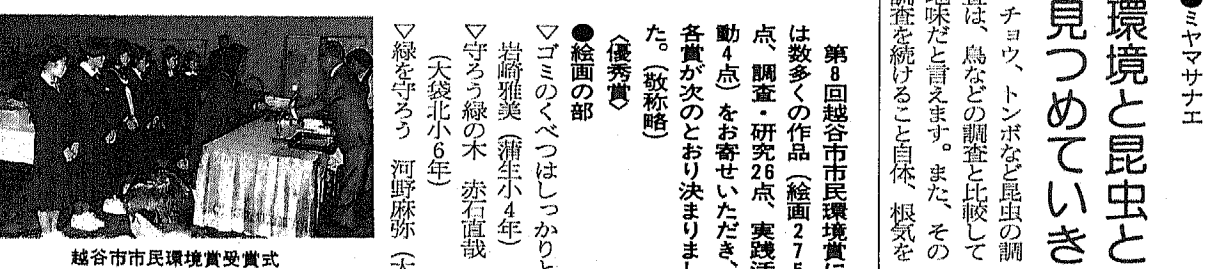 ●ミヤマサナエ
環境と昆虫と
見つめていき
チョウ、トンボなど昆虫の調
査は、鳥などの調査と比較して
地味だと言えます。また、その
調査を続けること自体、根気を
第8回越谷市市民環境賞に
は数多くの作品（絵画275
点、調査・研究26点、実践活
動4点）をお寄せいただき、
各賞が次のとおり決まりまし
た。（敬称略）
〈優秀賞〉
●絵画の部
▽ゴミのくべつはしっかりと
岩崎雅美（蒲生小4年）
▽守ろう緑の木　赤石直哉
（大袋北小6年）
▽緑を守ろう　河野麻弥（大
越谷市市民環境賞受賞式